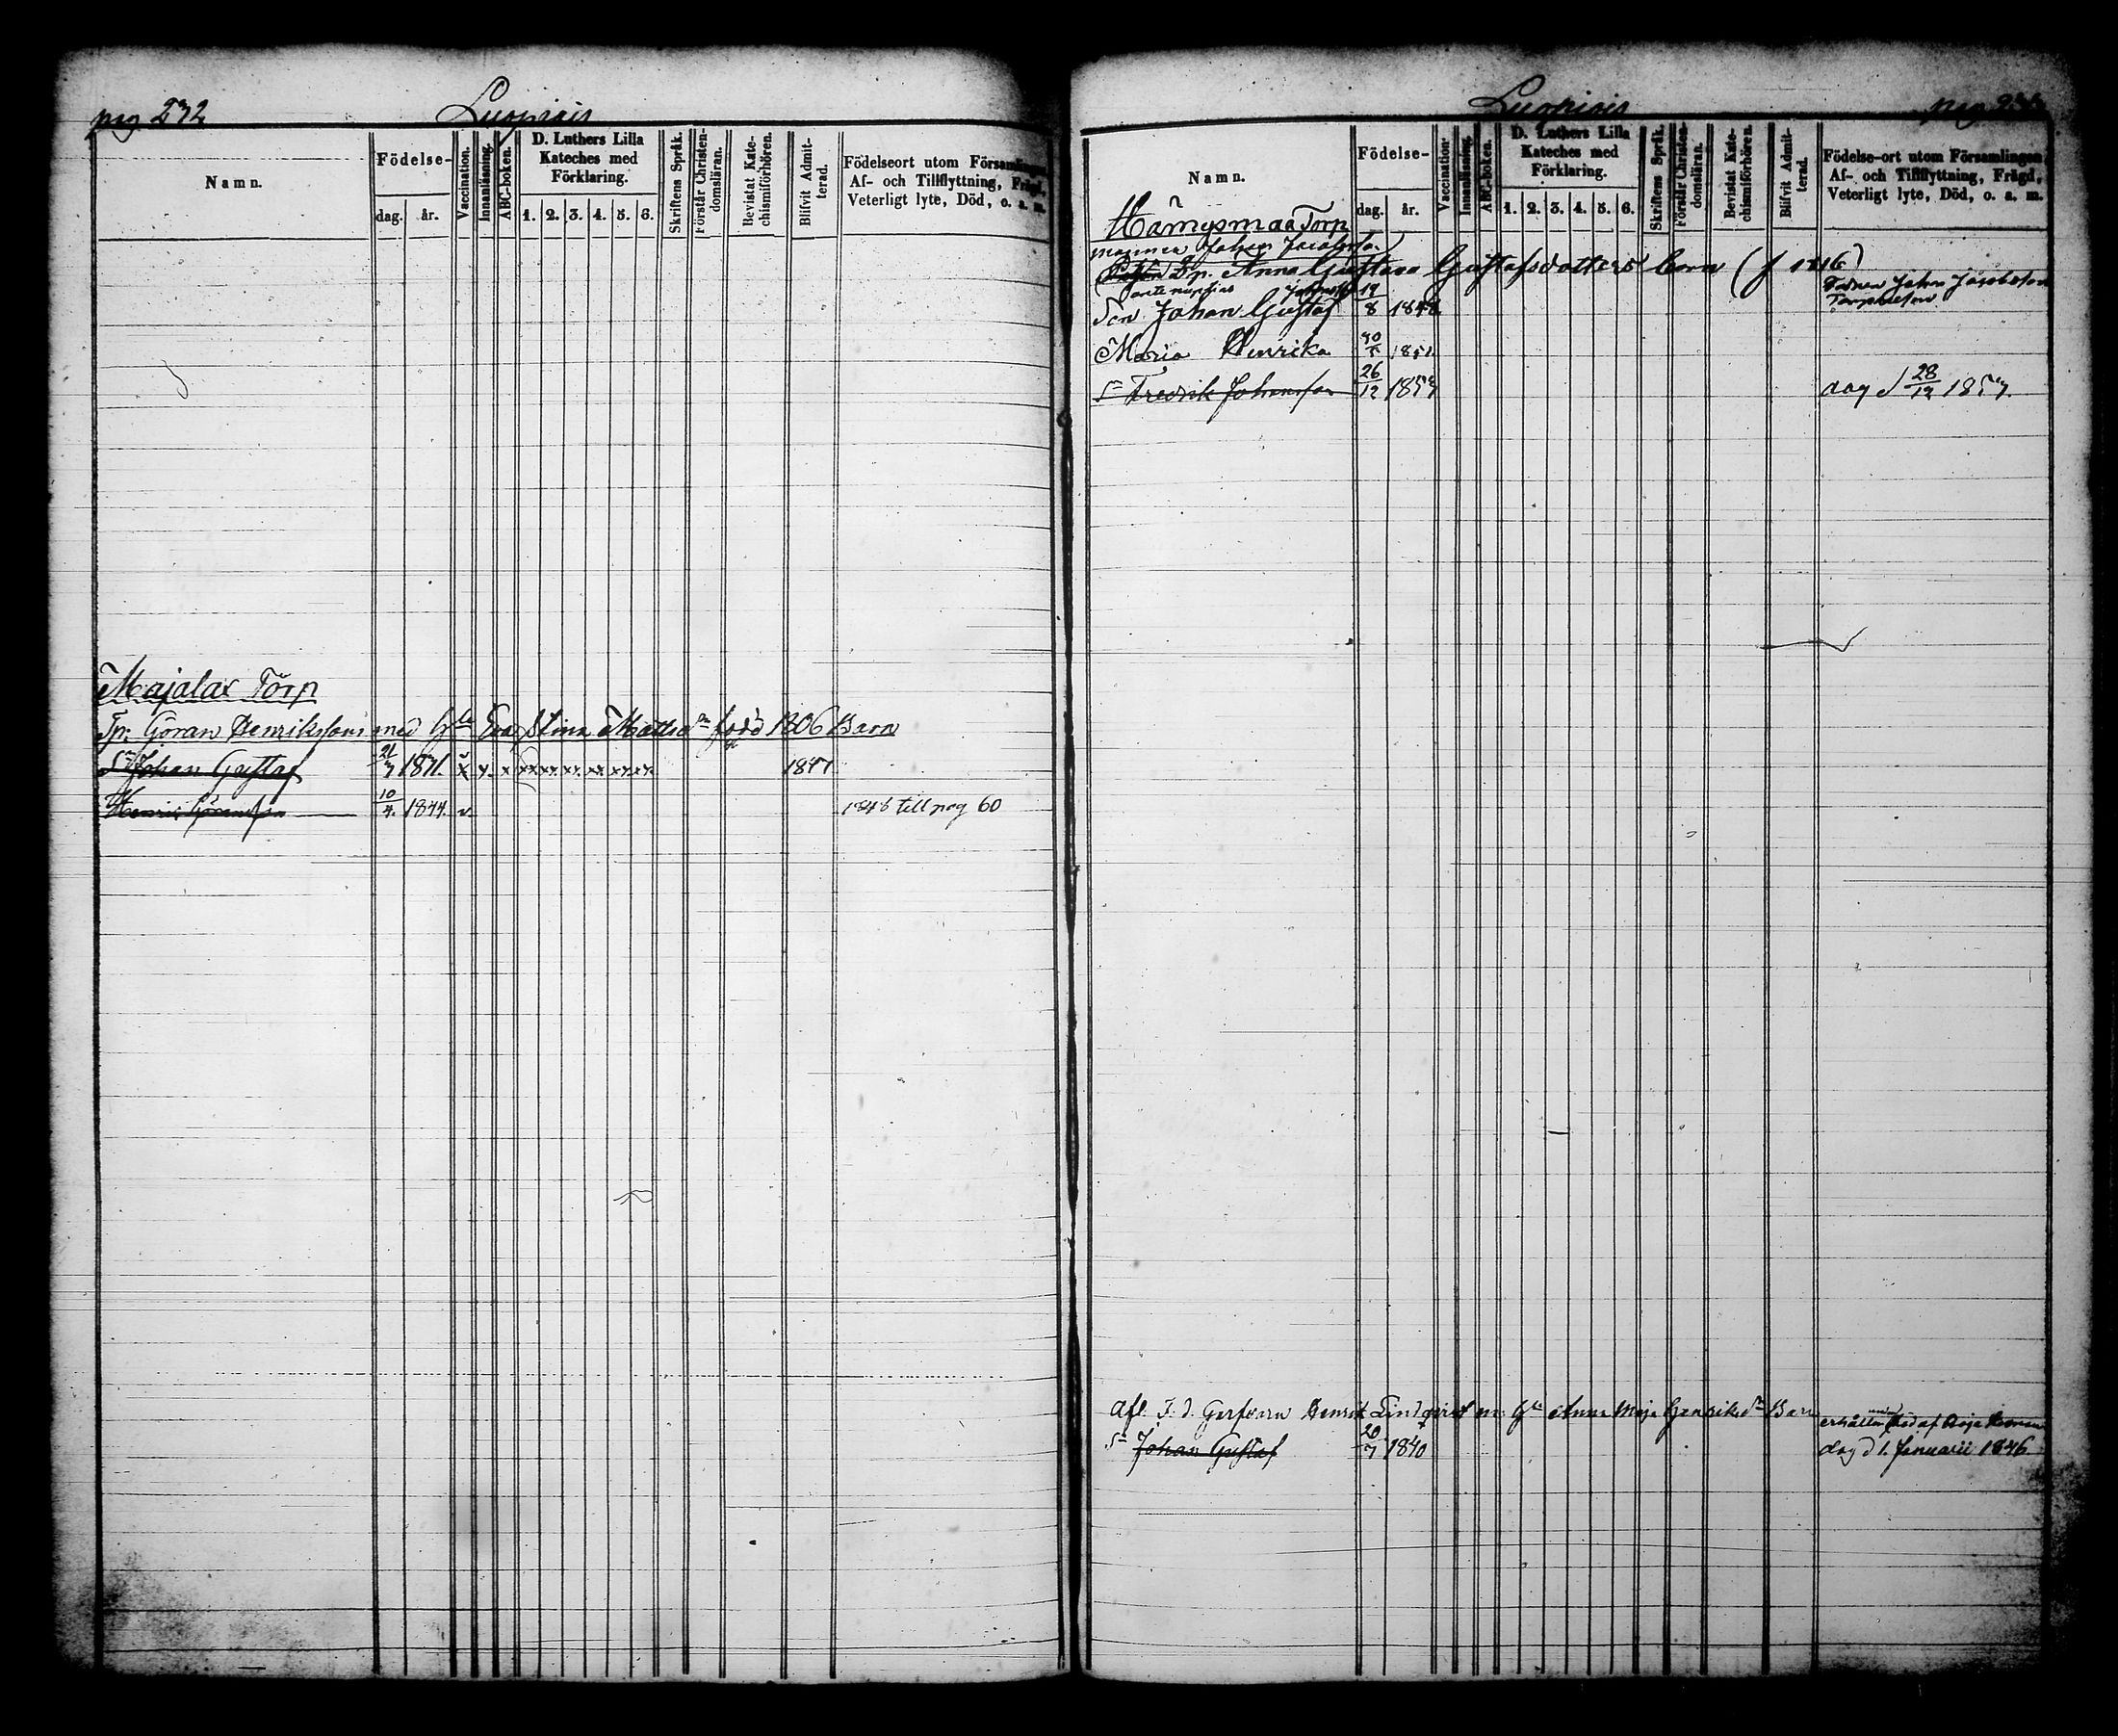 pag 232 Luopiois
Namn. Födelse- dag. år. Vaccination. Innanläsning. ABC-boken. D. Luthers Lilla Kateches med Förklaring. 1. 2. 3. 4. 5. 6. Skriftens Språk. Förstår Christendomsläran. Bevistat Katechismiförhören. Blifvit Admitterad. Födelseort utom Församlingen, Af- och Tillflyttning, Frägd, Veterligt lyte, Död, o. a. m.
Majalax Torp
Tp. Göran Henriksson med h Eva Stina Mattsdr född 1806 Barn
Sn Johan Gustaf 21/7 1831. 1847
Henric Göransson 10/4. 1844. v. 1846 till pag 60
Luopiois pag
Namn. Födelse- dag. år. Vaccination. Innanläsning. ABC-boken. D. Luthers Lilla Kateches med Förklaring. 1. 2. 3. 4. 5. 6. Skriftens Språk. Förstår Christendomsläran. Bevistat Katechismiförhören. Blifvit Admitterad. Födelse-ort utom Församlingen, Af- och Tillflyttning, Frägd, Veterligt lyte, Död, o. a. m.
Torp
Johan Jacobsson
Anna Gustava Gustafsdotters barn (f 1816)
ante nuptias Fadren Johan Jacobsson
Son Johan Gustaf 19/8 1848
Maria Henrika 30/5 1851.
Sn Fredrik Johansson 26/12 1857 dog d 28/12 1857.
Afl. Henrik Lindqvist m. h Anna Maja Henriksdr Barn
Sn Johan Gustaf 20/7 1840 dog d 1. Januarii 1846.